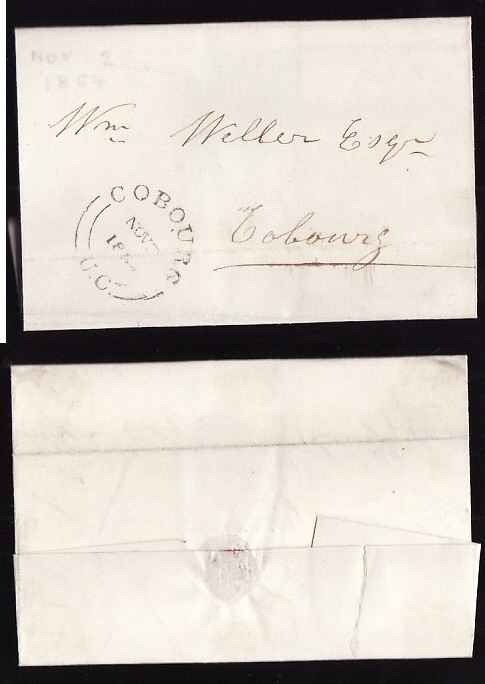 NOV 2
1854
Wm Weller Esqr
Cobourg
COBOURG
NOV
185
U.C.